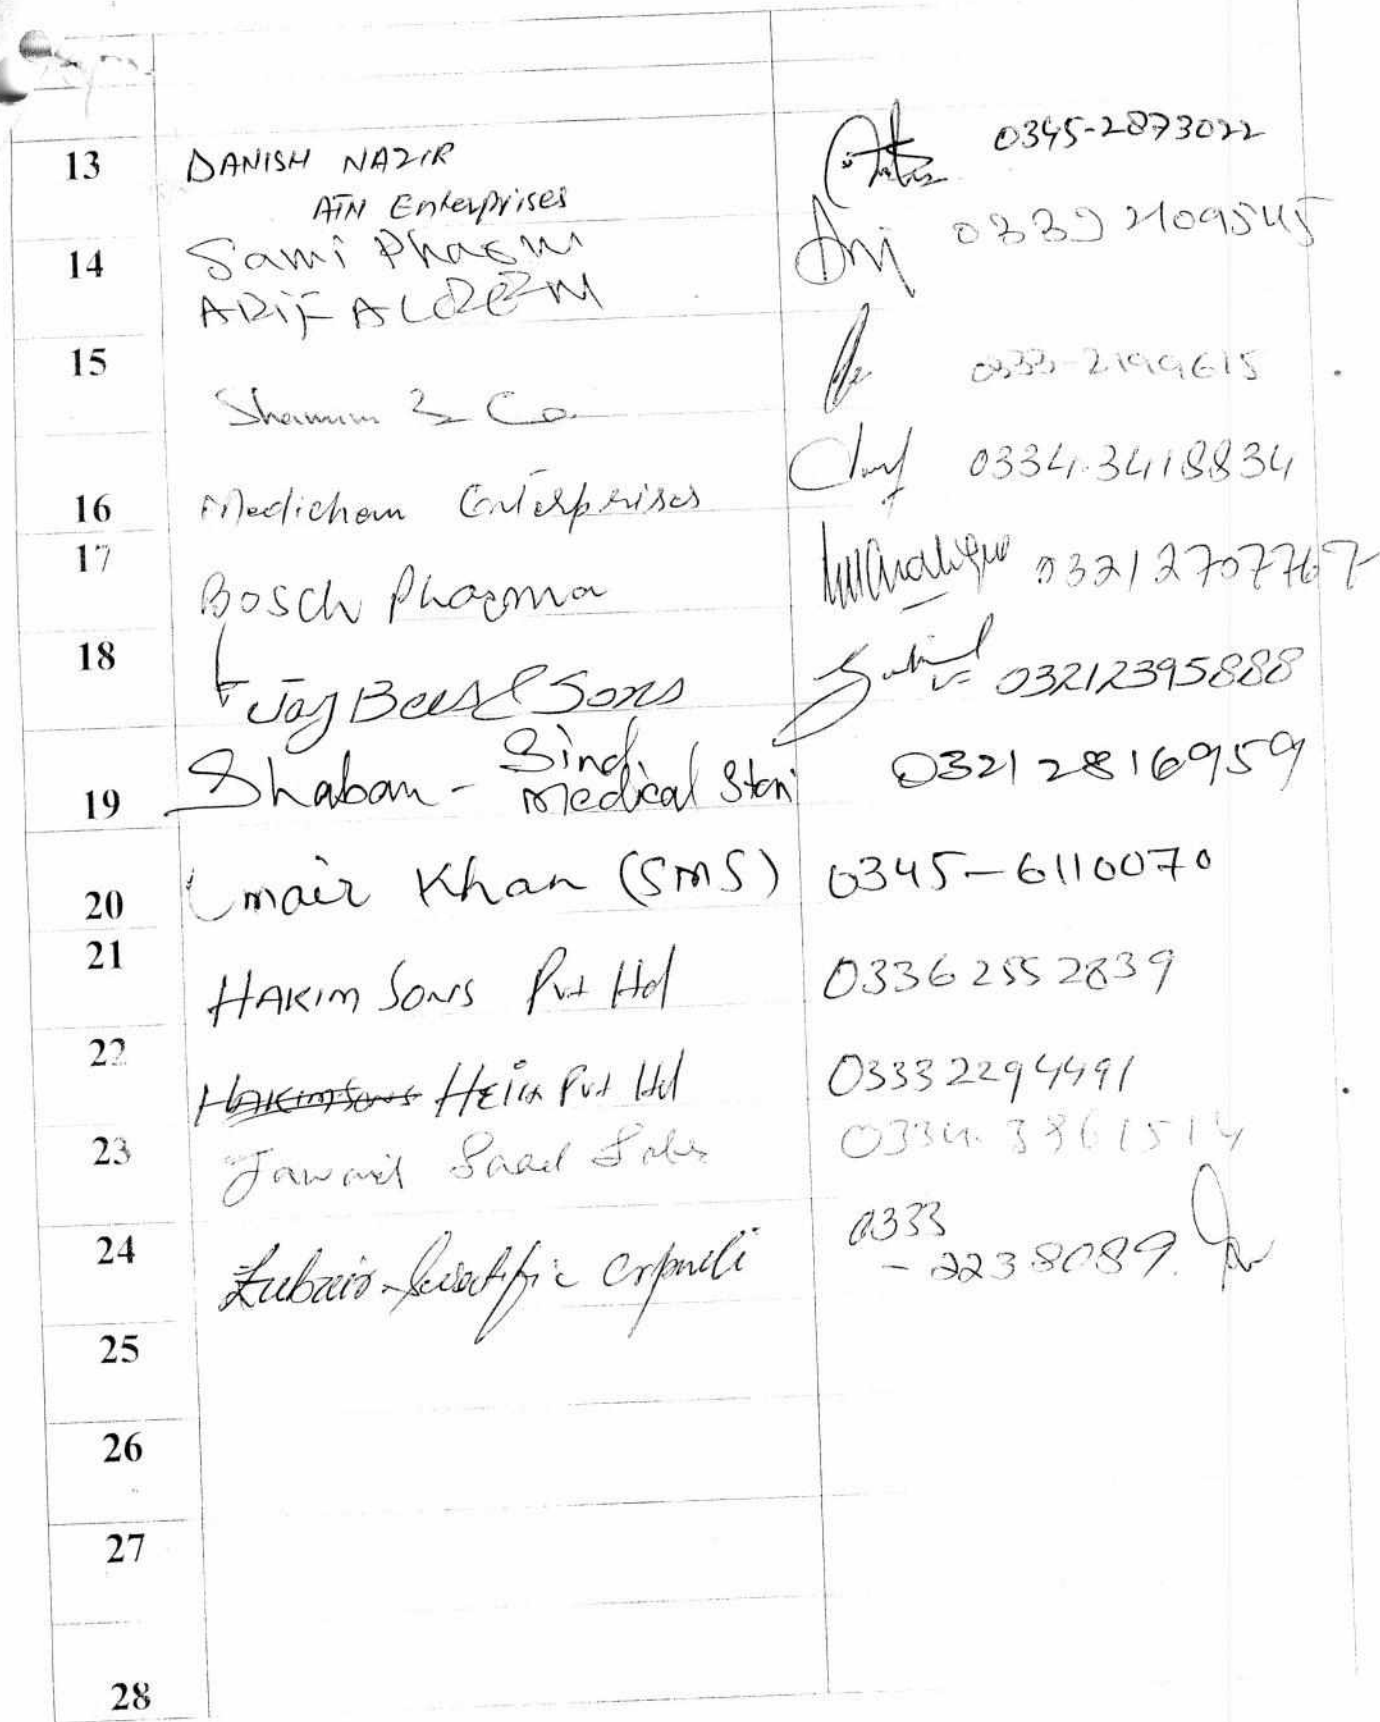 13 DANISH NAZIR 0345-2873022
ATN Enterprises
14 Sami Pharm 0333 2109545
ARIF ALEEM
15 0333-2199615
Shamim & Co
16 Medichem Enterprises 0334-3418834
17 Bosch Pharma 03212707767
18 Jay Bees & Sons 03212395888
Sind
19 Shaban - Medical Stor 0321 2816959
20 Umair Khan (SMS) 0345-6110070
21 HAKIM SONS Pvt Ltd 03362552839
22 HAKIMSONS HELIX Pvt Ltd 03332294491
23 Jawaid Saad 0334-3861514
24 Zubair Scientific 0333
-2238089.
25
26
27
28